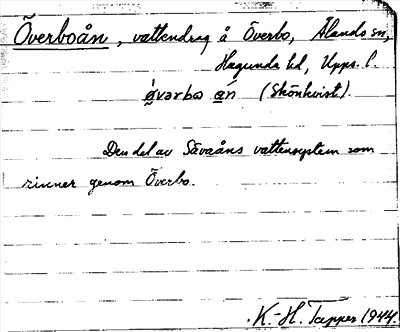 Överboån, vattendrag å Överbo, Ålands sn,
Hagunda hd, Upps. l.
(Skönkvist).
Den del av Sävaåns vattensystem som
rinner genom Överbo.
K.-H. Tapper 1944.